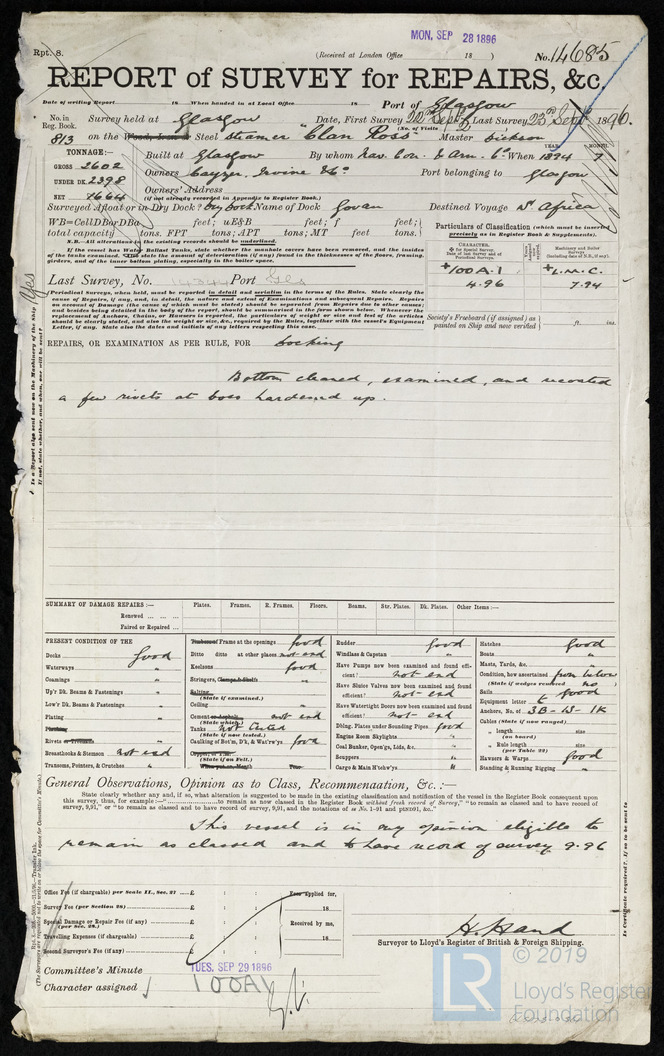 MON. SEP 28 1896
Rpt. 8.
(Received at London Office 18 )
No. 14685
REPORT of SURVEY for REPAIRS, &c.
Date of writing Report 18 When handed in at Local Office 18 Port of Glasgow
No. in Reg. Book. 813
Survey held at Glasgow Date, First Survey 20th Sept Last Survey 23rd Sept 1896.
(No. of Visits 2)
on the Steel steamer "Clan Ross" Master Dickson
TONNAGE:—
GROSS 2602
UNDER DK. 2398
NET 1664
Built at Glasgow By whom Nav. Con. & Arm. Co. When 1894 7
YEAR. MONTH.
Owners Cayzer, Irvine & Co. Port belonging to Glasgow
Owners' Address
(if not already recorded in Appendix to Register Book.)
Surveyed Afloat or in Dry Dock? Dry Dock Name of Dock Govan Destined Voyage S. Africa
WB=CellDBorDBa feet; uE&B feet; f feet;
total capacity tons. FPT tons; APT tons; MT feet tons.
N.B.—All alterations in the existing records should be underlined.
If the vessel has Water Ballast Tanks, state whether the manhole covers have been removed, and the insides
of the tanks examined. Also state the amount of deterioration (if any) found in the thicknesses of the floors, framing,
girders, and of the inner bottom plating, especially in the boiler space.
Particulars of Classification (which must be inserted
precisely as in Register Book & Supplements).
CHARACTER.
for Special Survey.
Date of last Survey and of
Periodical Surveys.
Machinery and Boiler
Surveys
(including date of N.B., if any).
+100A.1
4.96
+L.M.C.
7.94
Last Survey, No. Port Gls
(Periodical Surveys, when held, must be reported in detail and seriatim in the terms of the Rules. State clearly the
cause of Repairs, if any, and, in detail, the nature and extent of Examinations and subsequent Repairs. Repairs
on account of Damage (the cause of which must be stated) should be separated from Repairs due to other causes;
and besides being detailed in the body of the report, should be summarised in the form shown below. Whenever the
replacement of Anchors, Chains, or Hawsers is reported, the particulars of weight or size and test of the articles
should be clearly stated, and also the weight or size, &c., required by the Rules, together with the vessel's Equipment
Letter, if any. State also the dates and initials of any letters respecting this case.
Society's Freeboard (if assigned) as
painted on Ship and now verified ft. ins.
REPAIRS, OR EXAMINATION AS PER RULE, FOR Docking
Bottom cleaned, examined, and recoated
a few rivets at boss hardened up.
Is a Report also sent now on the Machinery of the Ship Yes
If not, state whether, and when, one will be sent.
SUMMARY OF DAMAGE REPAIRS:—
Plates. Frames. R. Frames. Floors. Beams. Str. Plates. Dk. Plates. Other Items:—
Renewed
Faired or Repaired
PRESENT CONDITION OF THE
Decks Good
Waterways "
Coamings "
Up'r Dk. Beams & Fastenings "
Low'r Dk. Beams & Fastenings "
Plating "
Rivets "
Breasthooks & Stemson not exd
Transoms, Pointers, & Crutches "
Frame at the openings good
Ditto ditto at other places not exd
Keelsons good
Stringers, "
(State if examined.)
Ceiling "
Cement not exd
(State which)
Tanks not tested
(State if now tested.)
Caulking of Bot'm, D'k, & Wat'rw'ys good
(State if on Felt.)
Rudder good
Windlass & Capstan "
Have Pumps now been examined and found efficient? not exd
Have Sluice Valves now been examined and found efficient? not exd
Have Watertight Doors now been examined and found efficient? not exd
Dblng. Plates under Sounding Pipes good
Engine Room Skylights "
Coal Bunker, Open'gs, Lids, &c. "
Scuppers "
Cargo & Main H'tchw'ys "
Hatches good
Boats "
Masts, Yards, &c. "
Condition, how ascertained from below
(State if wedges removed no)
Sails good
Equipment letter t
Anchors, No. of 3B-1S-1K
Cables (State if now ranged)
" length size
(on board)
" Rule length size
(per Table 22)
Hawsers & Warps good
Standing & Running Rigging "
General Observations, Opinion as to Class, Recommendation, &c.:—
State clearly whether any, and if so, what alteration is suggested to be made in the existing classification and notification of the vessel in the Register Book consequent upon
this survey, thus, for example:—" to remain as now classed in the Register Book without fresh record of Survey," "to remain as classed and to have record of
survey, 9,91," or "to remain as classed and to have record of survey, 9,91, and the notations of ss No. 1–91 and ptND91, &c."
This vessel is in my opinion eligible to
remain as classed and to have record of survey 9.96
Office Fee (if chargeable) per Scale II., Sec. 27 £ : :
Survey Fee (per Section 28) £ : :
Special Damage or Repair Fee (if any) £ : :
(per Sec. 28.)
Travelling Expenses (if chargeable) £ : :
Second Surveyor's Fee (if any) £ : :
Fees applied for, 18
Received by me, 18
H. Hand
Surveyor to Lloyd's Register of British & Foreign Shipping.
Committee's Minute TUES. SEP 29 1896
Character assigned 100A1
LR © 2019
Lloyd's Register
Foundation